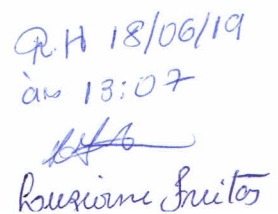 R.H 18/06/19
às 13:07
Louziane Freitas